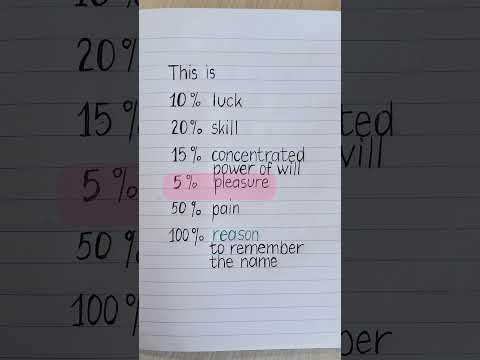 This is
10% luck
20% skill
15% concentrated
power of will
5% pleasure
50% pain
100% reason
to remember
the name
20%
15%
5%
50%
100%
ated
will
ber